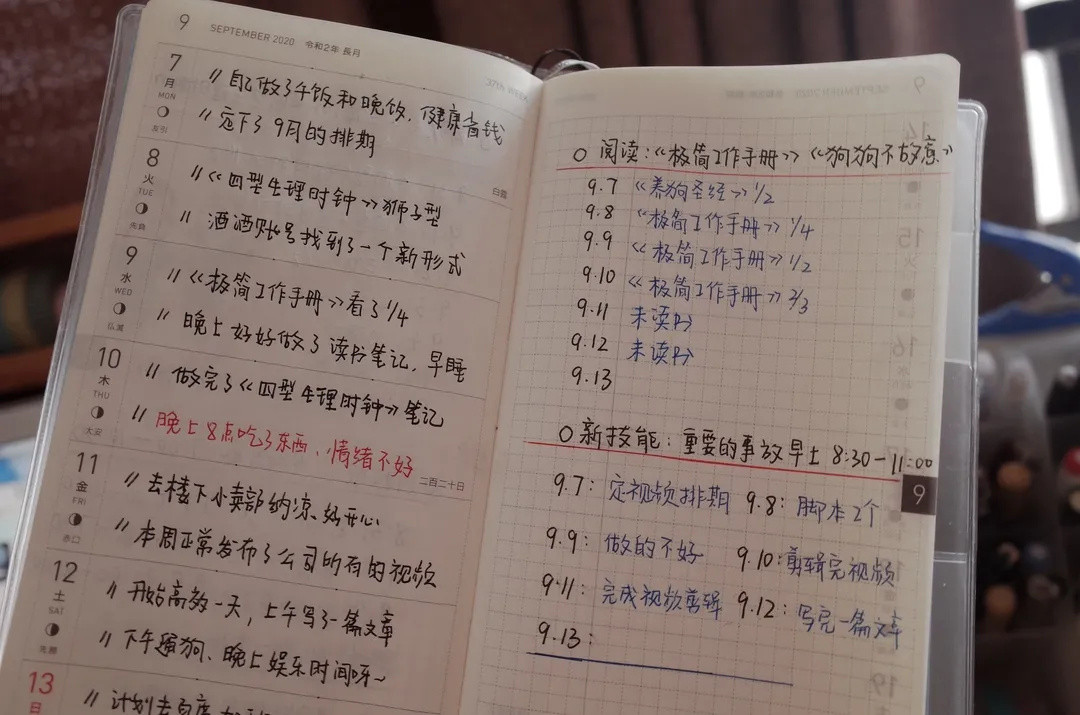 9 SEPTEMBER 2020 令和2年 長月
7 月 MON 友引
// 自己做了午饭和晚饭,健康省钱
// 定下了9月的排期
白露
8 火 TUE 先負
// 《四型生理时钟》狮子型
// 洒洒账号找到了一个新形式
9 水 WED 仏滅
// 《极简工作手册》看了1/4
// 晚上好好做了读书笔记,早睡
10 木 THU 大安
// 做完了《四型生理时钟》笔记
// 晚上8点吃了东西、情绪不好
二百二十日
11 金 FRI 赤口
// 去楼下小卖部纳凉、好开心
// 本周正常发布了公司所有的视频
12 土 SAT 先勝
// 开始高效一天,上午写了一篇文章
// 下午遛狗、晚上娱乐时间呀~
13 日
// 计划去
37TH WEEK
9 SEPTEMBER 2020
○ 阅读:《极简工作手册》《狗狗不故意》
9.7 《养狗圣经》1/2
9.8 《极简工作手册》1/4
9.9 《极简工作手册》1/2
9.10 《极简工作手册》2/3
9.11 未读书
9.12 未读书
9.13
○ 新技能:重要的事放早上 8:30-11:00
9
9.7: 定视频排期 9.8: 脚本2个
9.9: 做的不好 9.10: 剪辑完视频
9.11: 完成视频剪辑 9.12: 写完一篇文章
9.13:
14
15
16
19